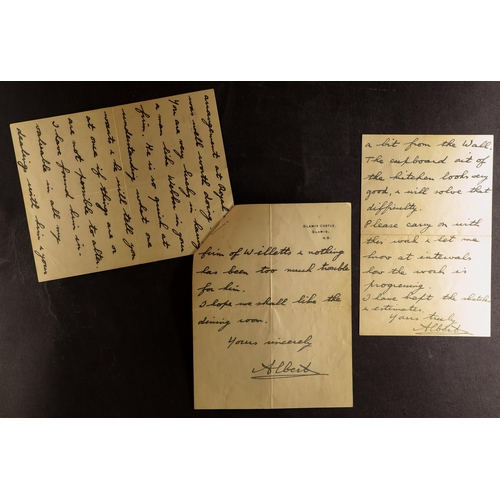 arrangement at
was well worth doing.
You are very lucky in having
a man like Webber in your
firm. He is so quick at
understanding what one
wants & he will tell you
at once if things are or
are not possible to alter.
I have found him in-
valuable in all my
dealing with him your
GLAMIS CASTLE,
GLAMIS,
N.B.
firm of Willetts & nothing
has been too much trouble
for him.
I hope we shall like the
dining room.
Yours sincerely
Albert
a bit from the Wall.
The cupboard out of
the kitchen looks very
good, & will solve that
difficulty.
Please carry on with
this work & let me
know at intervals
how the work is
progressing.
I have kept the sketches
& estimates.
Yours truly
Albert